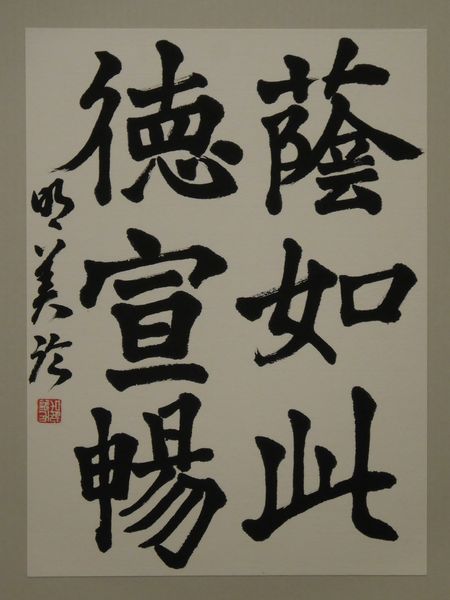 蔭如此
徳宣暢
明美